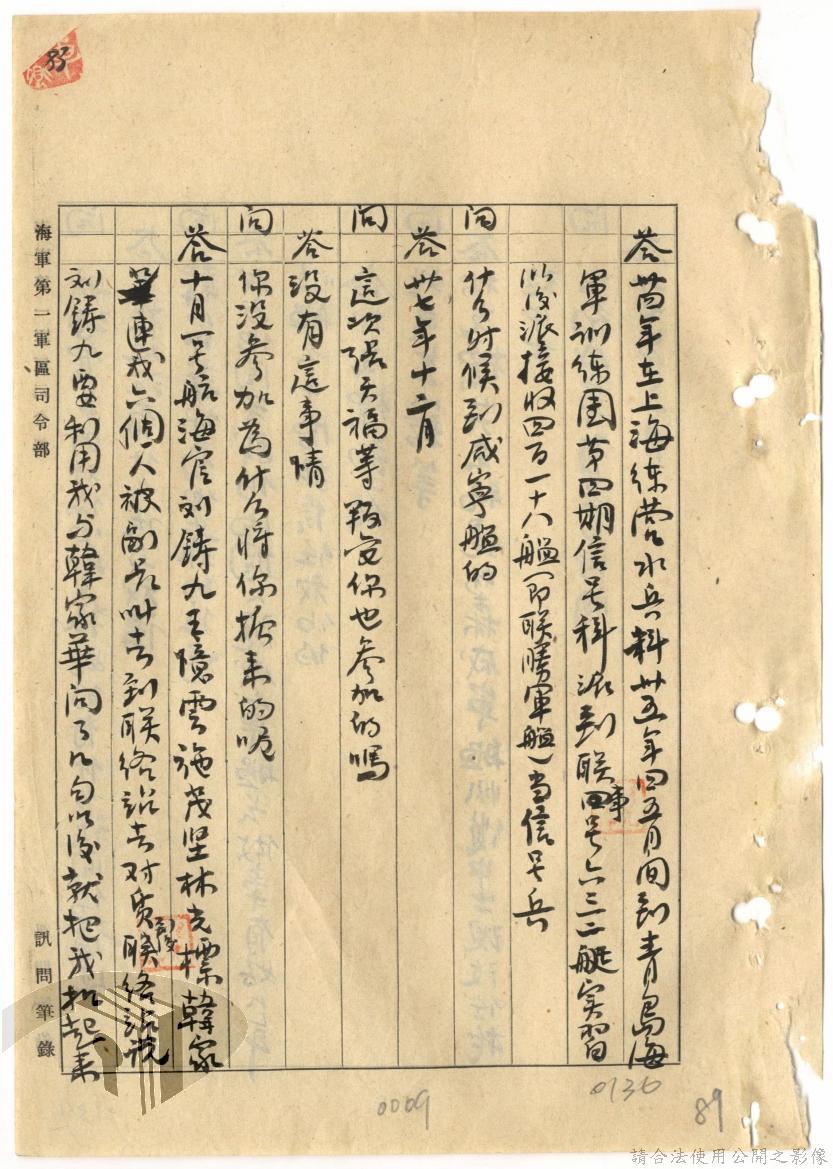 答 卅四年在上海练营水兵科卅五年四五月间到青島海
軍訓练团第四期信号科派到联事号六三二艇实習
以後派接收四百一十八艦（即联勝軍艦）当信号兵
问 什么时候到咸寧艦的
答 卅七年十二月
问 這次張天福等叛变你也参加的嗎
答 没有這事情
问 你没参加為什么将你押来的呢
答 十月一号航海官刘鋳九王憶雲施茂坚林克標韓家
華連我六個人被副长叫去到联络站去对质联络站税
刘鋳九要利用我与韓家華问了几句以後就把我扣起来
海軍第一軍區司令部
訊問筆錄
0009
0136
89
請合法使用公開之影像